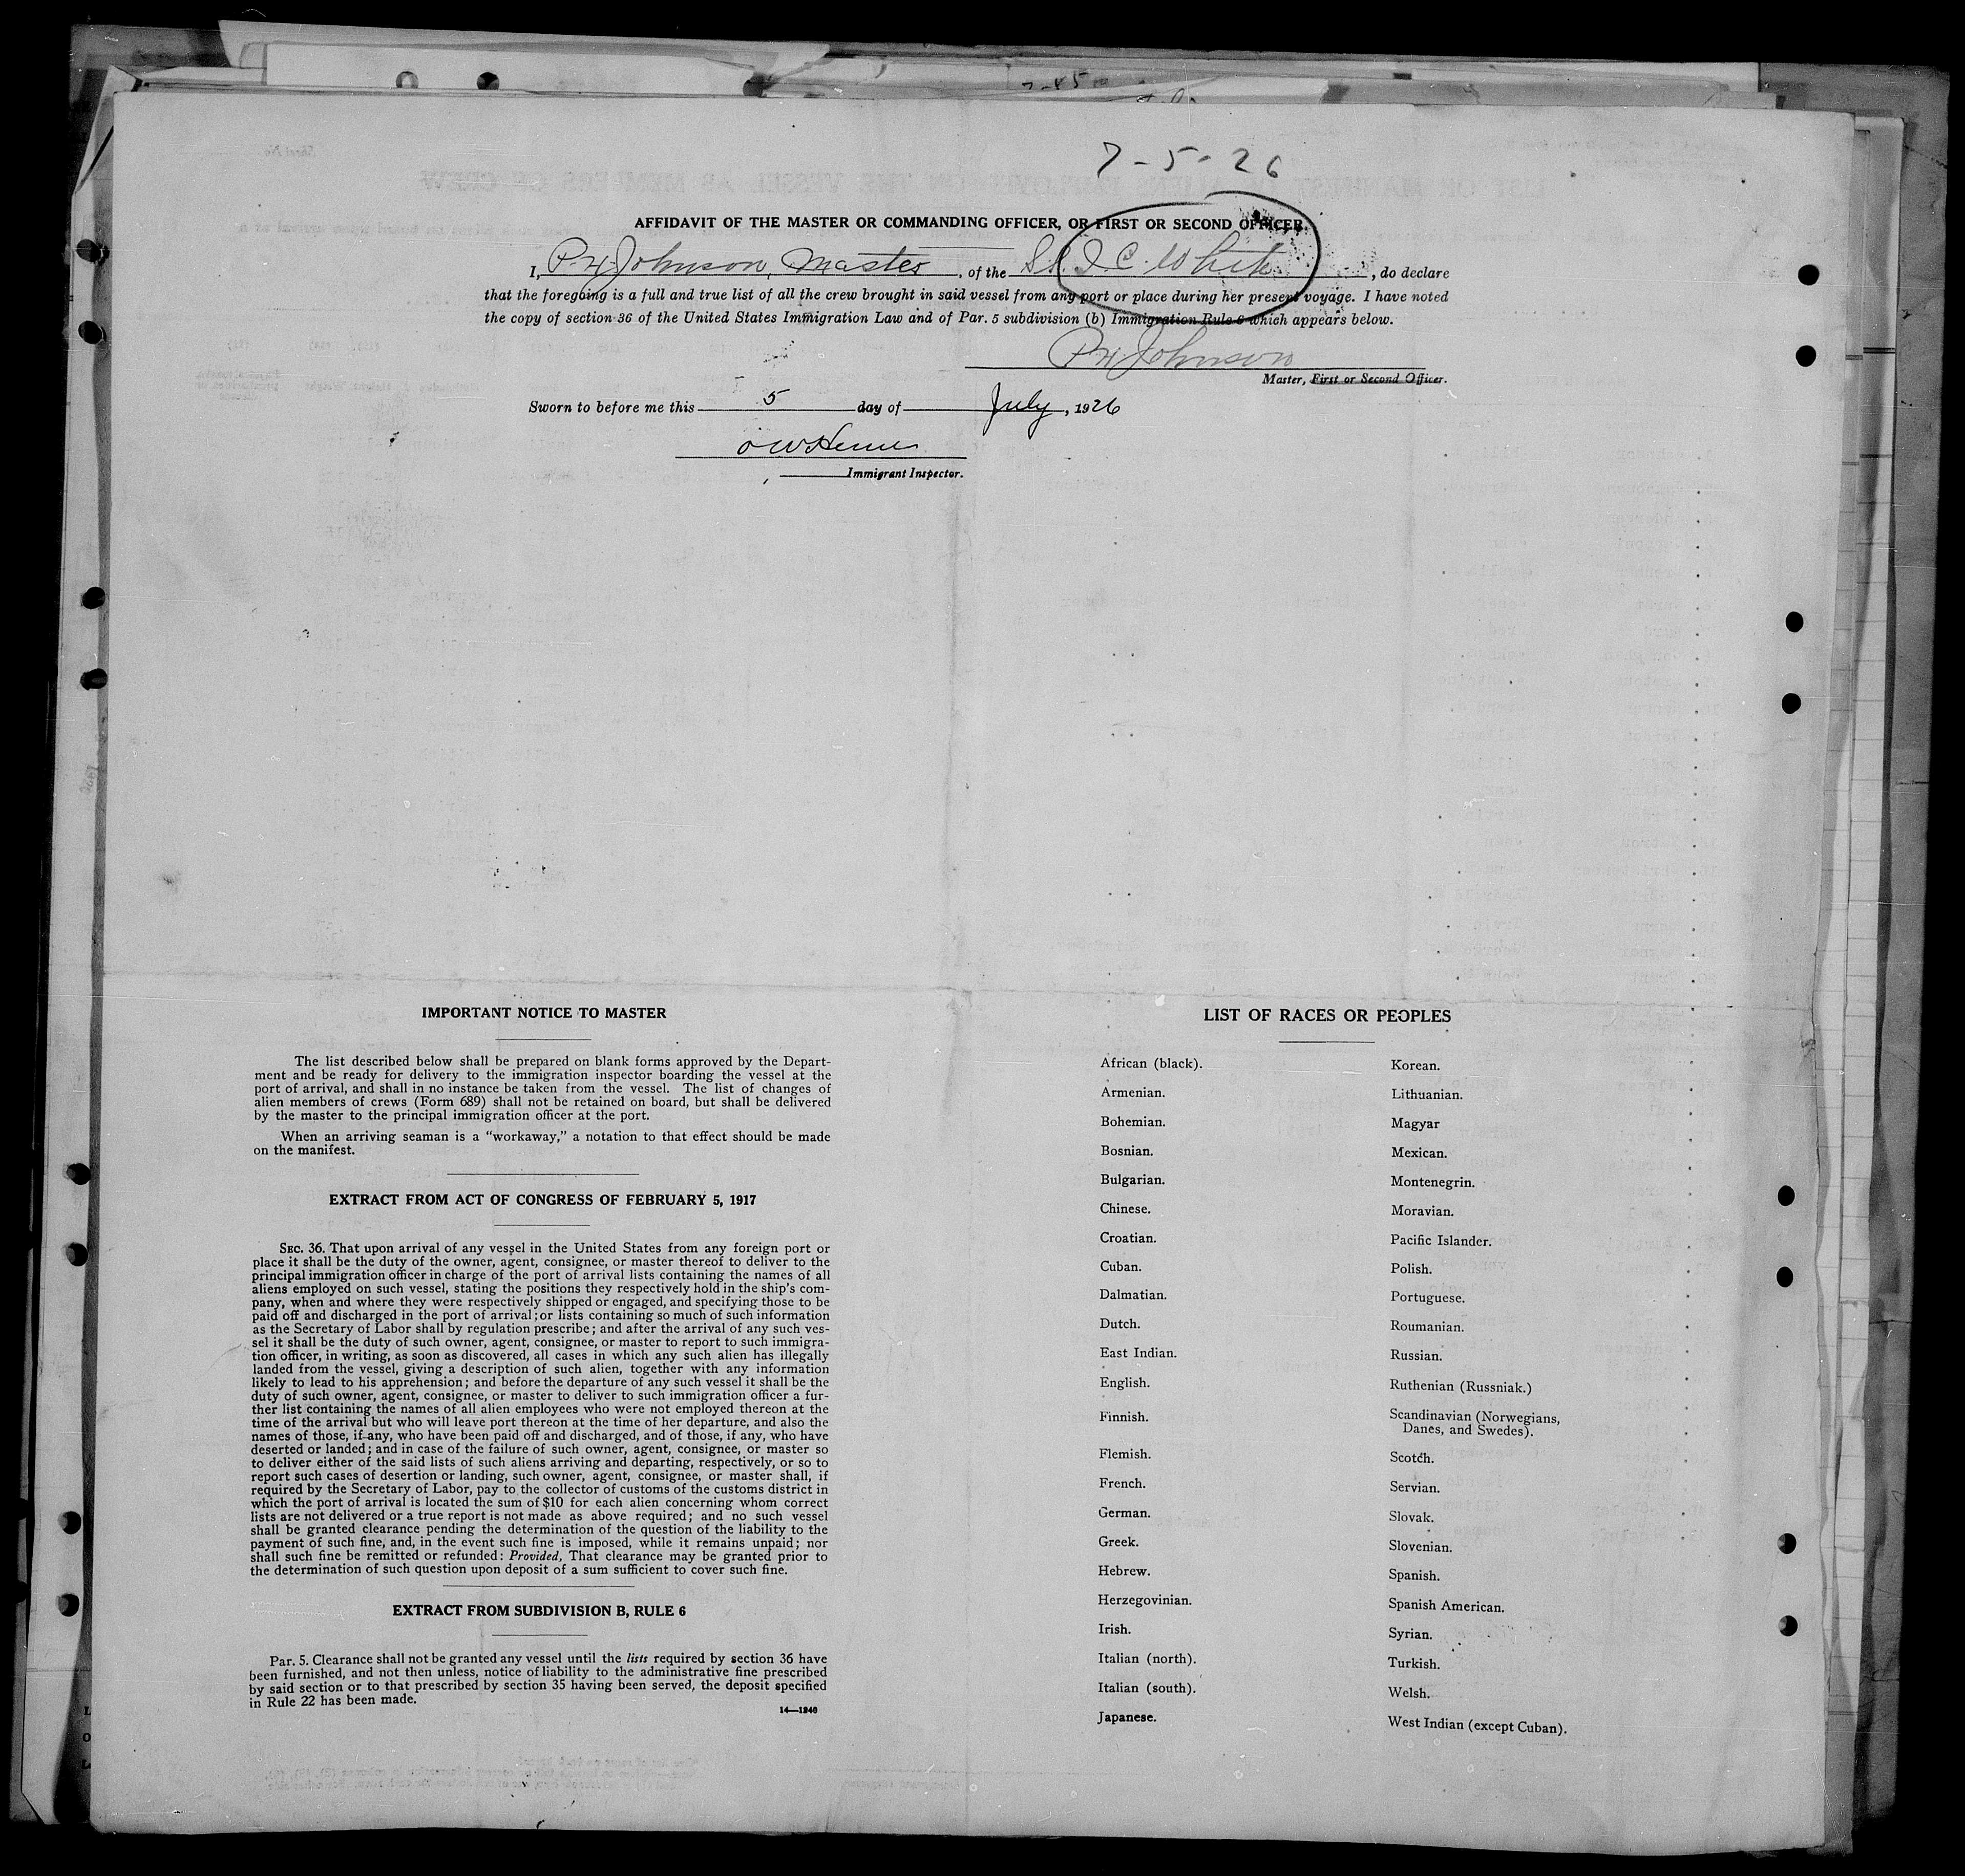 7-5-26
AFFIDAVIT OF THE MASTER OR COMMANDING OFFICER, OR FIRST OR SECOND OFFICER.
I, P H Johnson, Master, of the SS. I. C. White, do declare
that the foregoing is a full and true list of all the crew brought in said vessel from any port or place during her present voyage. I have noted
the copy of section 36 of the United States Immigration Law and of Par. 5 subdivision (b) Immigration Rule 6 which appears below.
P H Johnson
Master, First or Second Officer.
Sworn to before me this 5 day of July, 1926
Immigrant Inspector.
IMPORTANT NOTICE TO MASTER
The list described below shall be prepared on blank forms approved by the Depart-
ment and be ready for delivery to the immigration inspector boarding the vessel at the
port of arrival, and shall in no instance be taken from the vessel. The list of changes of
alien members of crews (Form 689) shall not be retained on board, but shall be delivered
by the master to the principal immigration officer at the port.
When an arriving seaman is a "workaway," a notation to that effect should be made
on the manifest.
EXTRACT FROM ACT OF CONGRESS OF FEBRUARY 5, 1917
SEC. 36. That upon arrival of any vessel in the United States from any foreign port or
place it shall be the duty of the owner, agent, consignee, or master thereof to deliver to the
principal immigration officer in charge of the port of arrival lists containing the names of all
aliens employed on such vessel, stating the positions they respectively hold in the ship's com-
pany, when and where they were respectively shipped or engaged, and specifying those to be
paid off and discharged in the port of arrival; or lists containing so much of such information
as the Secretary of Labor shall by regulation prescribe; and after the arrival of any such ves-
sel it shall be the duty of such owner, agent, consignee, or master to report to such immigra-
tion officer, in writing, as soon as discovered, all cases in which any such alien has illegally
landed from the vessel, giving a description of such alien, together with any information
likely to lead to his apprehension; and before the departure of any such vessel it shall be the
duty of such owner, agent, consignee, or master to deliver to such immigration officer a fur-
ther list containing the names of all alien employees who were not employed thereon at the
time of the arrival but who will leave port thereon at the time of her departure, and also the
names of those, if any, who have been paid off and discharged, and of those, if any, who have
deserted or landed; and in case of the failure of such owner, agent, consignee, or master so
to deliver either of the said lists of such aliens arriving and departing, respectively, or so to
report such cases of desertion or landing, such owner, agent, consignee, or master shall, if
required by the Secretary of Labor, pay to the collector of customs of the customs district in
which the port of arrival is located the sum of $10 for each alien concerning whom correct
lists are not delivered or a true report is not made as above required; and no such vessel
shall be granted clearance pending the determination of the question of the liability to the
payment of such fine, and, in the event such fine is imposed, while it remains unpaid; nor
shall such fine be remitted or refunded: Provided, That clearance may be granted prior to
the determination of such question upon deposit of a sum sufficient to cover such fine.
EXTRACT FROM SUBDIVISION B, RULE 6
Par. 5. Clearance shall not be granted any vessel until the lists required by section 36 have
been furnished, and not then unless, notice of liability to the administrative fine prescribed
by said section or to that prescribed by section 35 having been served, the deposit specified
in Rule 22 has been made.
14—1240
LIST OF RACES OR PEOPLES
African (black).
Armenian.
Bohemian.
Bosnian.
Bulgarian.
Chinese.
Croatian.
Cuban.
Dalmatian.
Dutch.
East Indian.
English.
Finnish.
Flemish.
French.
German.
Greek.
Hebrew.
Herzegovinian.
Irish.
Italian (north).
Italian (south).
Japanese.
Korean.
Lithuanian.
Magyar
Mexican.
Montenegrin.
Moravian.
Pacific Islander.
Polish.
Portuguese.
Roumanian.
Russian.
Ruthenian (Russniak.)
Scandinavian (Norwegians,
Danes, and Swedes).
Scotch.
Servian.
Slovak.
Slovenian.
Spanish.
Spanish American.
Syrian.
Turkish.
Welsh.
West Indian (except Cuban).